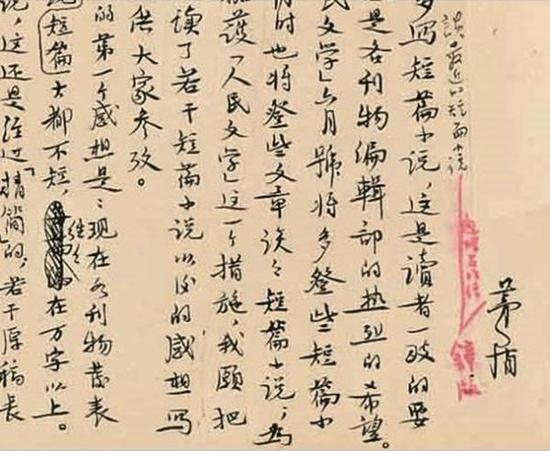 茅盾
锌版
谈最近的短篇小说
多写短篇小说，这是读者一致的要
是各刊物编辑部的热烈的希望。
民文学」六月號将多登些短篇小
时也将登些文章谈谈短篇小说，为
拥护「人民文学」这一个措施，我愿把
读了若干短篇小说以后的感想写
供大家参攷。
的第一个感想是：现在各刊物发表
短篇大都不短，往往在万字以上。
说，这还是经过「精简」的，若干原稿长